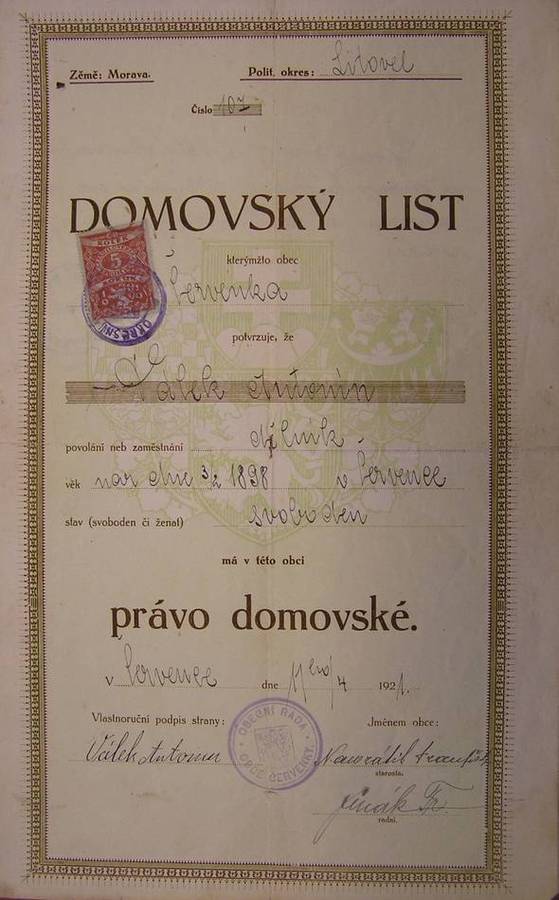 Země: Morava. Polit. okres: Litovel
Číslo 107
DOMOVSKÝ LIST
kterýmžto obec
Červenka
potvrzuje, že
Válek Antonín
povolání neb zaměstnání dělník
věk nar dne 3/2 1898 v Července
stav (svoboden či ženat) svoboden
má v této obci
právo domovské.
v Července dne 11 /4 1921.
Vlastnoruční podpis strany: Jménem obce:
Válek Antonín Navrátil František
starosta.
radní.
KOLEK
5
OKRESNÍ
OBECNÍ RADA
OBCE ČERVENKY